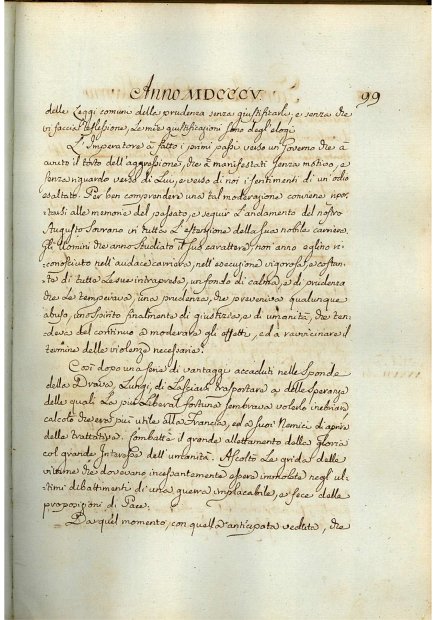 Anno MDCCCV. 99
delle Leggi comuni della prudenza senza giustificarli, e senza che
vi faccia riflessione, Le mie giustificazioni sono degl'elogj.
L'Imperatore à fatto i primi passi verso un Governo che à
avuto il torto dell'aggressione, che à manifestati senza motivo, e
senza riguardo verso di Lui, e verso di noi i sentimenti di un'odio
esaltato. Per ben comprendere una tal moderazione conviene ripor-
tarsi alle memorie del passato, e seguir L'andamento del nostro
Augusto Sovrano in tutta L'estensione della sua nobile carriera.
Gli Uomini che anno studiato il suo carattere, non anno eglino ri-
conosciuto nell'audace carriera, nell'esecuzione vigorosa, e costan-
te di tutte Le sue intraprese, un fondo di calma, e di prudenza
che Le temperava, una prudenza, che preveniva qualunque
abuso, uno spirito finalmente di giustizia, e di umanità, che ten-
deva del continuo a moderare gli effetti, ed a ravvicinare il
termine delle violenze necessarie.
Così dopo una serie di vantaggi accaduti nelle Sponde
della Drava, Lungi di Lasciarsi trasportare a delle Speranze
delle quali La più Liberal fortuna sembrava volerlo inebriare
calcolò ch'era più utile alla Francia, ed a suoi Nemici d'aprire
delle trattative. Combattè il grande allettamento della Gloria
col grande Interesse dell'umanità. Ascoltò Le grida delle
vittime che dovevano incessantemente essere immolate negl'ul-
timi dibattimenti di una guerra implacabile, e fece delle
proposizioni di Pace.
Da quel momento, con quella anticipata veduta, che